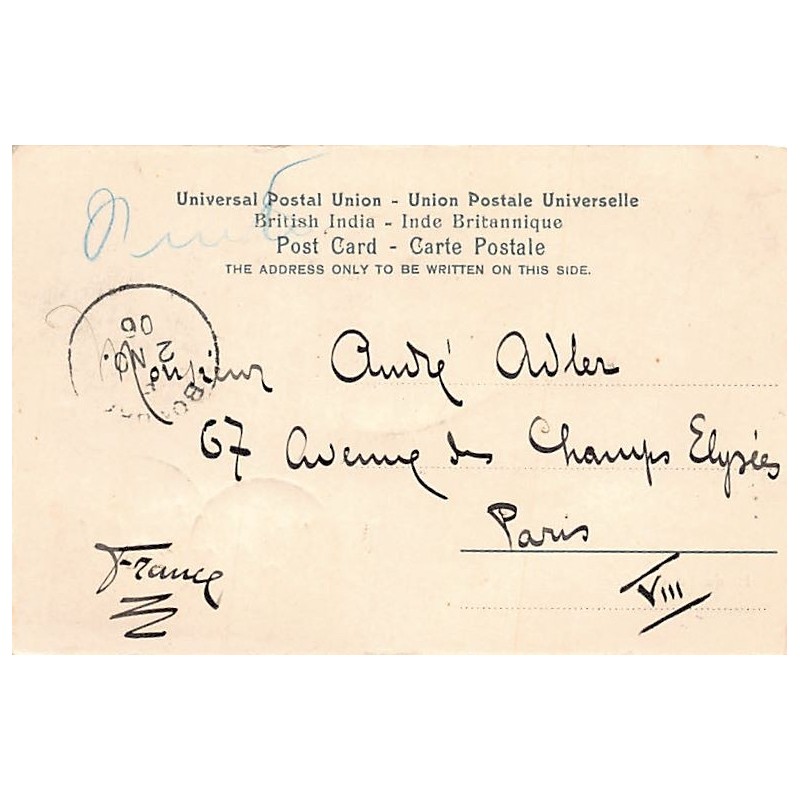 Universal Postal Union - Union Postale Universelle
British India - Inde Britannique
Post Card - Carte Postale
THE ADDRESS ONLY TO BE WRITTEN ON THIS SIDE.
2 NO
06
Monsieur André Adler
67 Avenue des Champs Elysées
Paris
VIII
France